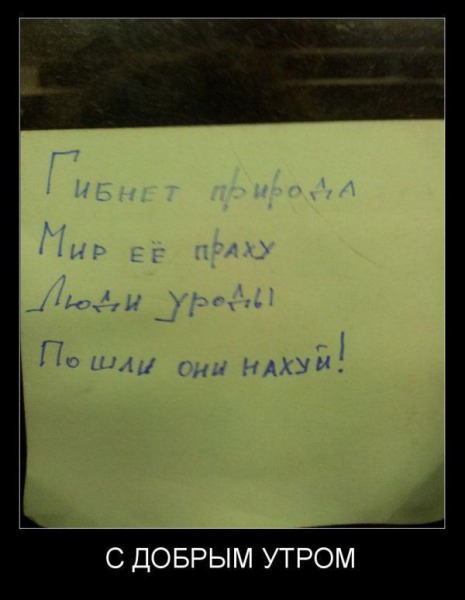 Гибнет природа
Мир её праху
Люди уроды
Пошли они нахуй!
С ДОБРЫМ УТРОМ